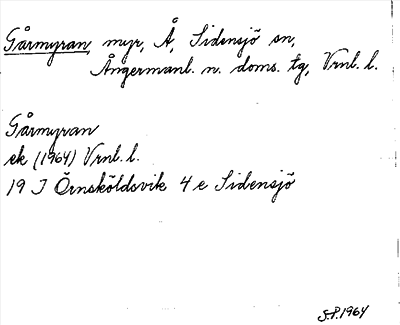 Gårmyran, myr, Å, Sidensjö sn,
Ångermanl. n. doms. tg, Vrnl. l.
Gårmyran
ek (1964) Vrnl. l.
19 J Örnsköldsvik 4 e Sidensjö
S.P. 1964